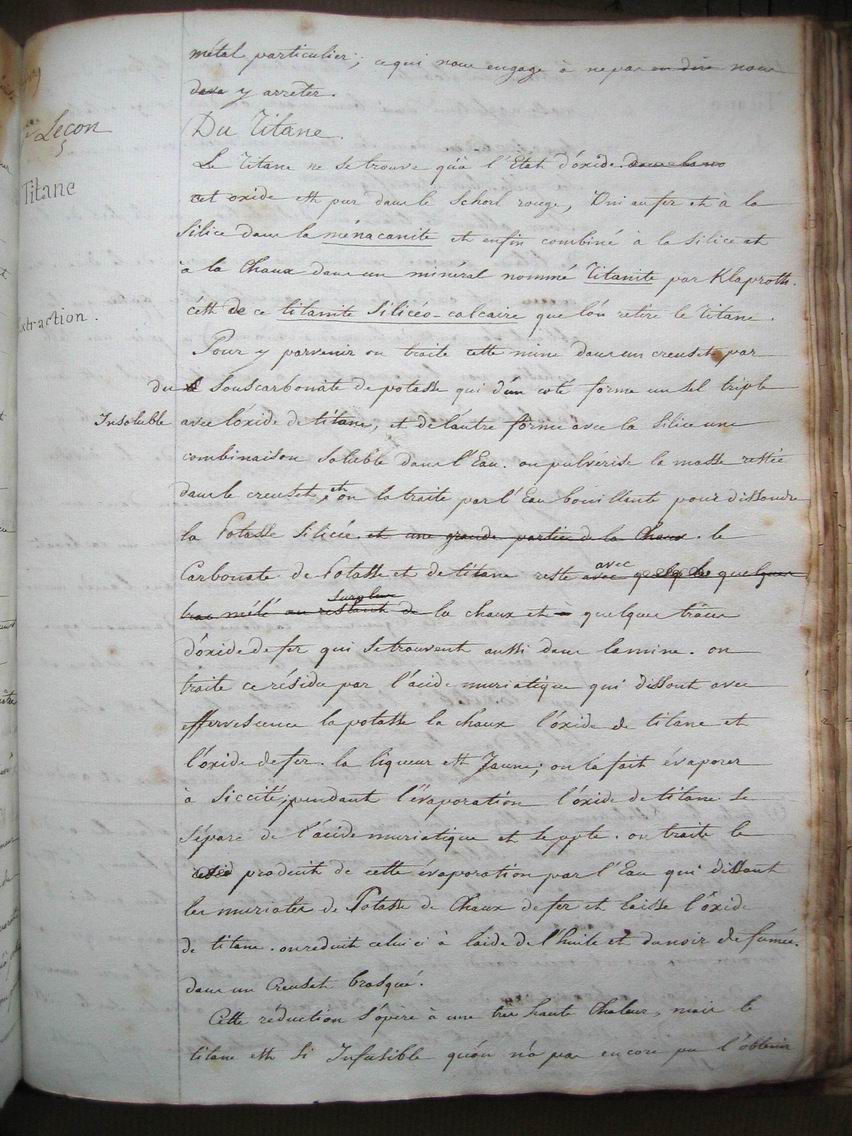 métal particulier; ce qui nous engage à ne pas en dire nous
dava y arrêter.
Leçon
Du Titane.
Le Titane ne se trouve qu'à l'Etat d'oxide dans la
Titane
cet oxide est pur dans le Schorl rouge, Uni au fer et à la
Silice dans la ménacanite et enfin combiné à la silice et
à la Chaux dans un minéral nommé Titanite par Klaproth.
c'est de ce titanite siliceo-calcaire que l'on retire le Titane.
Extraction.
Pour y parvenir on traite cette mine dans un creuset par
du souscarbonate de potasse qui d'un coté forme un sel triple
Insoluble avec l'oxide de titane, et de l'autre forme avec la silice une
combinaison soluble dans l'Eau. on pulvérise la masse restée
dans le creuset, et on la traite par l'Eau bouillante pour dissoudre
la Potasse silicée et une grande partie de la Chaux. le
Carbonate de Potasse et de titane reste avec avec quelques
mélé au restant surplus de la chaux et à quelques traces
d'oxide de fer qui se trouvent aussi dans la mine. on
traite ce résidu par l'acide muriatique qui dissout avec
effervescence la potasse la chaux l'oxide de titane et
l'oxide de fer. la liqueur est Jaune; on la fait évaporer
à siccité; pendant l'évaporation l'oxide de titane se
sépare de l'acide muriatique et se ppte. on traite le
produit de cette évaporation par l'Eau qui dissout
les muriates de Potasse de Chaux de fer et laisse l'oxide
de titane. on reduit celui ci à l'aide de l'huile et du noir de fumée.
dans un Creuset brasqué.
Cette réduction s'opère à une très haute Chaleur, mais le
titane est si Infusible qu'on n'a pas encore pu l'obtenir